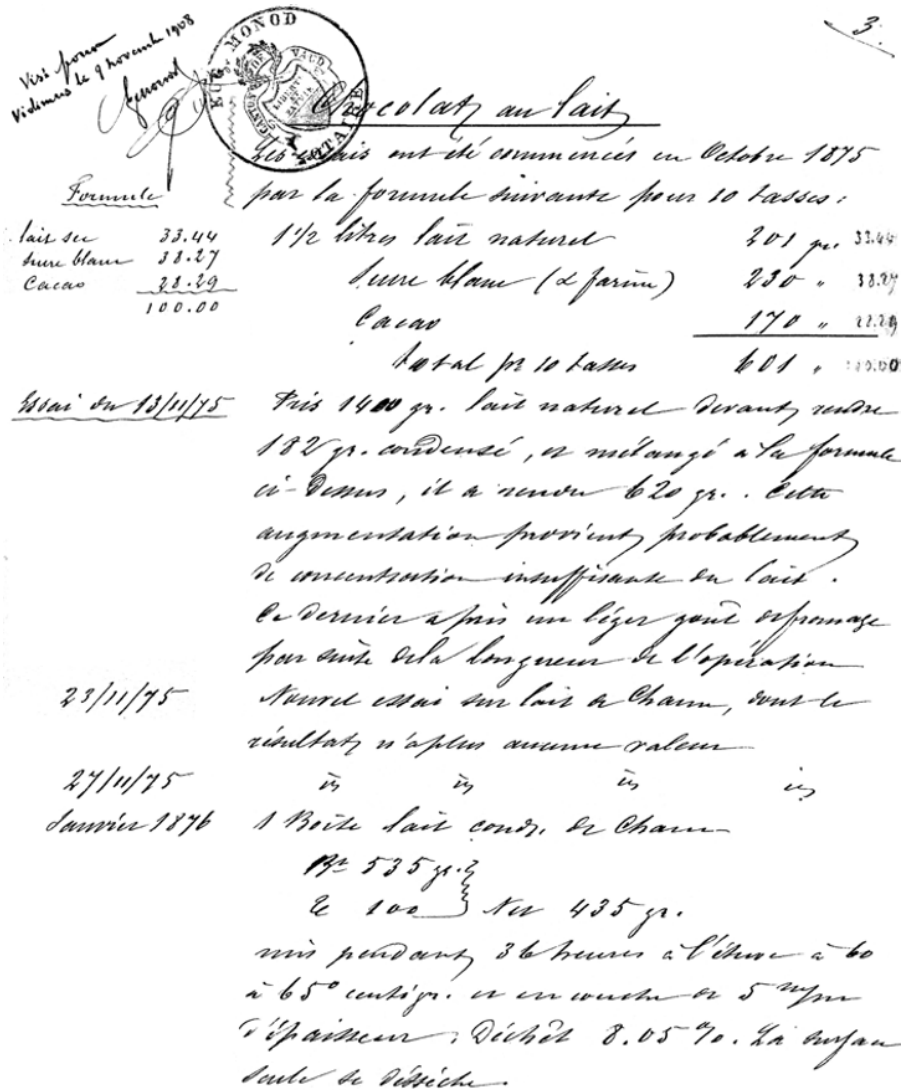 3.
Visé pour
Vidimus le 9 novembre 1908
EUG. MONOD
NOTAIRE
CANTON DE VAUD
LIBERTÉ ET PATRIE
Chocolat au lait
Les essais ont été commencés en Octobre 1875
par la formule suivante pour 10 tasses :
Formule
lait sec 33.44
sucre blanc 38.27
Cacao 28.29
100.00
1 1/2 litres lait naturel 201 gr. 33.44
Sucre blanc (& farine) 230 " 38.27
Cacao 170 " 28.29
total pr 10 tasses 601 " 100.00
Essai du 13/11/75 Pris 1400 gr. lait naturel devant rendre
182 gr. condensé, et mélangé à la formule
ci-dessus, il a rendu 620 gr.. Cette
augmentation provient probablement
de concentration insuffisante du lait.
Ce dernier a pris un léger goût de fromage
par suite de la longueur de l'opération
23/11/75 Nouvel essai sur lait de Cham, dont le
résultat n'a plus aucune valeur
27/11/75 id id id id
Janvier 1876 1 Boîte lait cond. de Cham
Bt 535 gr.
Te 100 Net 435 gr.
mis pendant 36 heures à l'étuve à 60
à 65° centigr. et en couche de 5 m/m
d'épaisseur. Déchêt 8.05 %. La surface
seule se dessèche.